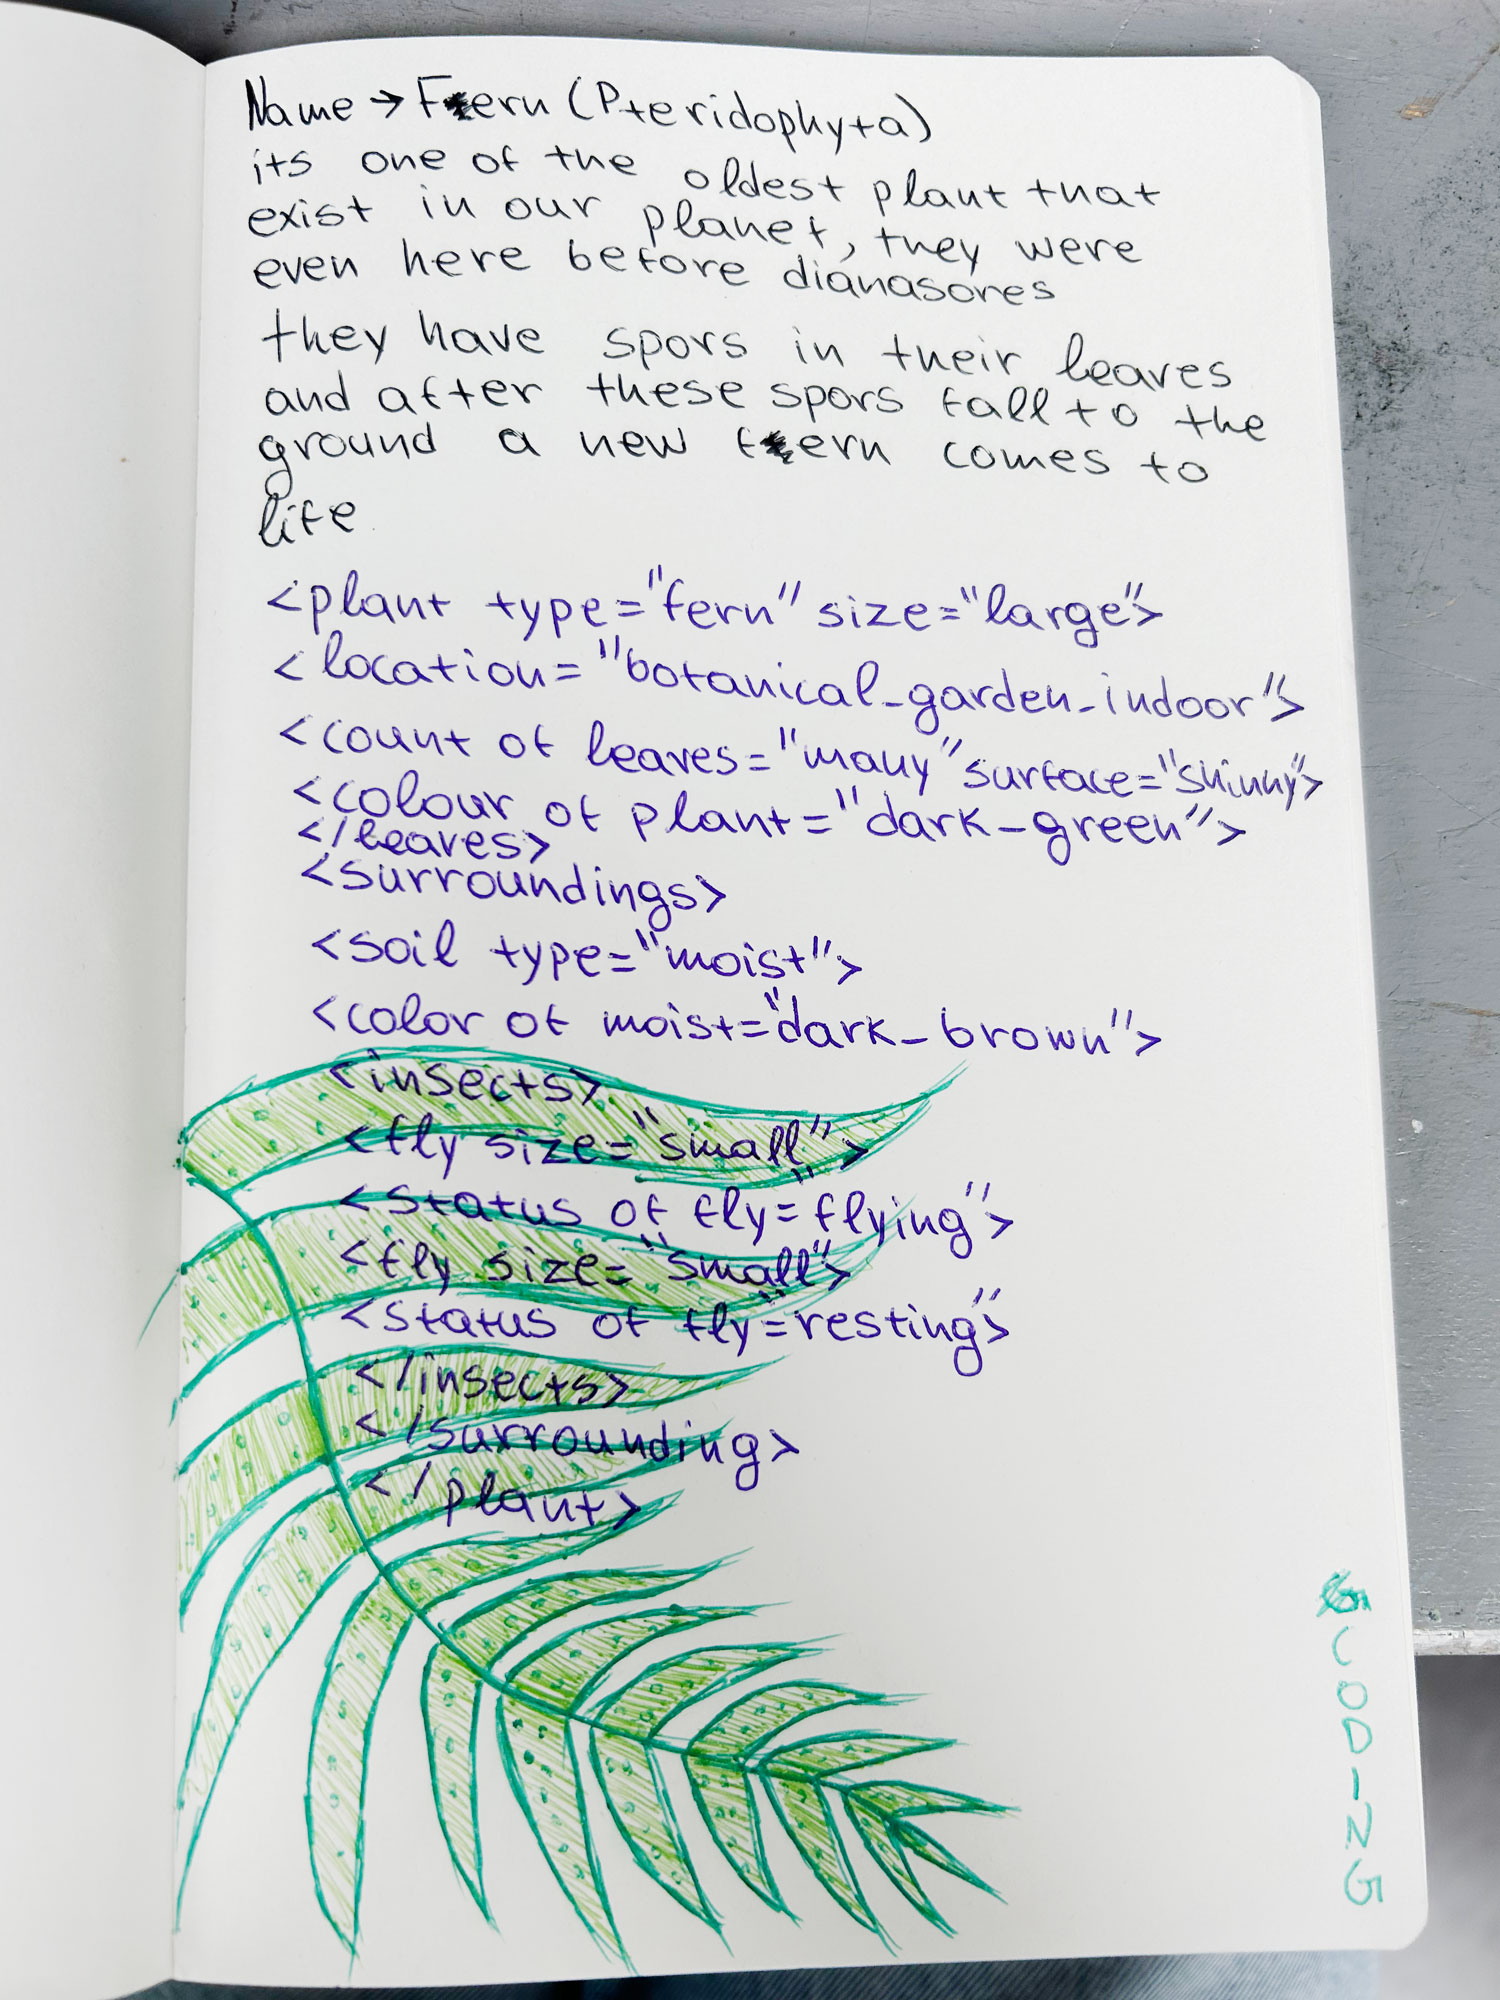 Name → Fern (Pteridophyta)
its one of the oldest plant that
exist in our planet, they were
even here before dianasores
they have spors in their leaves
and after these spors fall to the
ground a new fern comes to
life
<plant type="fern" size="large">
<location="botanical_garden_indoor">
<count of leaves="many" surface="shinny">
<colour of plant="dark-green">
</leaves>
<surroundings>
<soil type="moist">
<color of moist="dark_brown">
<insects>
<fly size="small">
<status of fly="flying">
<fly size="small">
<status of fly="resting">
</insects>
</surrounding>
</plant>
CODING